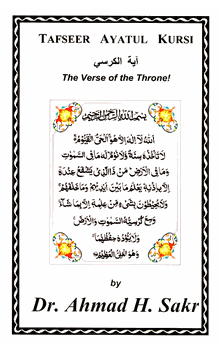 TAFSEER AYATUL KURSI
آية الكرسي
The Verse of the Throne!
بِسْمِ اللهِ الرَّحْمٰنِ الرَّحِيْمِ
اَللهُ لَآ اِلٰهَ اِلَّا هُوَ اَلْحَيُّ الْقَيُّوْمُ
لَا تَأْخُذُهٗ سِنَةٌ وَّلَا نَوْمٌ لَهٗ مَا فِى السَّمٰوٰتِ
وَمَا فِى الْاَرْضِ مَنْ ذَا الَّذِيْ يَشْفَعُ عِنْدَهٗٓ
اِلَّا بِاِذْنِهٖ يَعْلَمُ مَا بَيْنَ اَيْدِيْهِمْ وَمَا خَلْفَهُمْ
وَلَا يُحِيْطُوْنَ بِشَيْءٍ مِّنْ عِلْمِهٖٓ اِلَّا بِمَا شَآءَ
وَسِعَ كُرْسِيُّهُ السَّمٰوٰتِ وَالْاَرْضَ
وَلَا يَـُٔوْدُهٗ حِفْظُهُمَا
وَهُوَ الْعَلِيُّ الْعَظِيْمُ
by
Dr. Ahmad H. Sakr